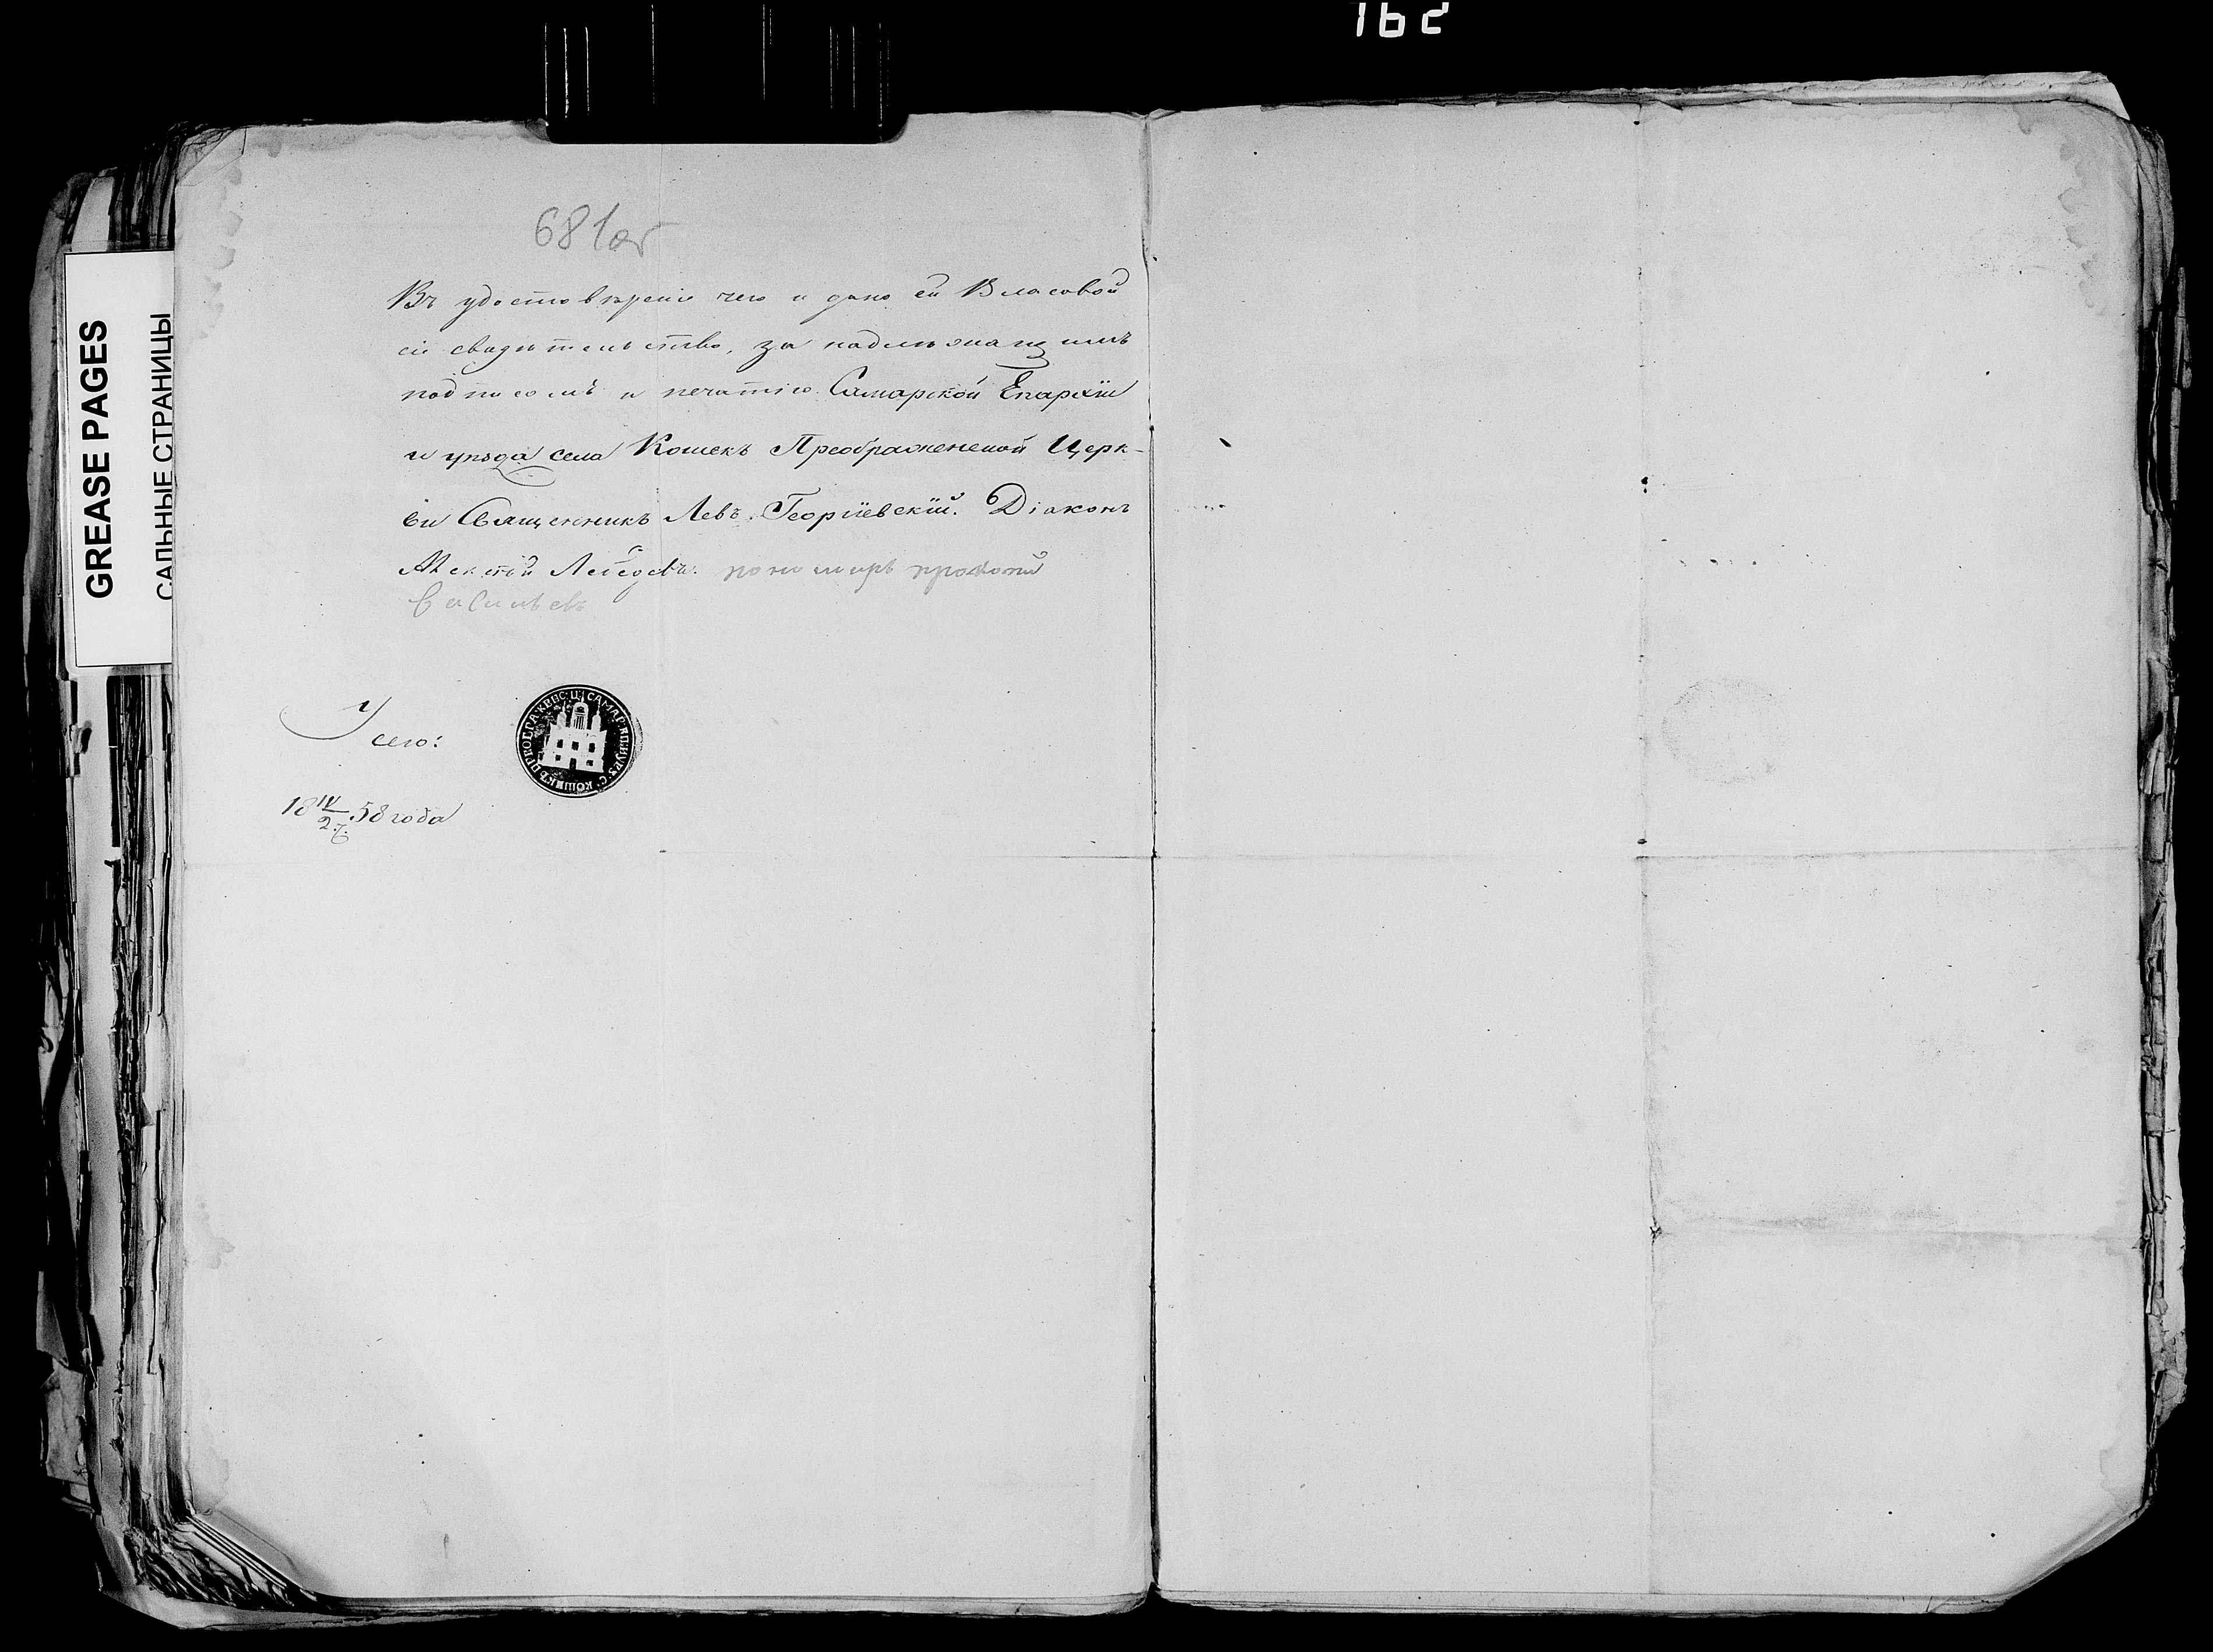 162
GREASE PAGES
САЛЬНЫЕ СТРАНИЦЫ
681об
Въ удостовѣренiе чего и дано ей Власовой
сiе свидѣтельство, за надлежащимъ
подписомъ и печатiю Самарской Епархiи
и уѣзда села Кошекъ Преображенской Церк-
ви Священникъ Левъ Георгiевскiй. Дiаконъ
Лебедевъ. пономарь
Васильевъ
Ч
сего:
18 IV/27 58 года